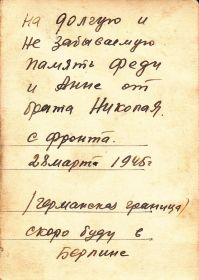 на долгую и
не забываемую
память феди
и Анне от
брата Николая.
с фронта.
28 марта 1945г
/германская граница/
скоро буду в
Берлине